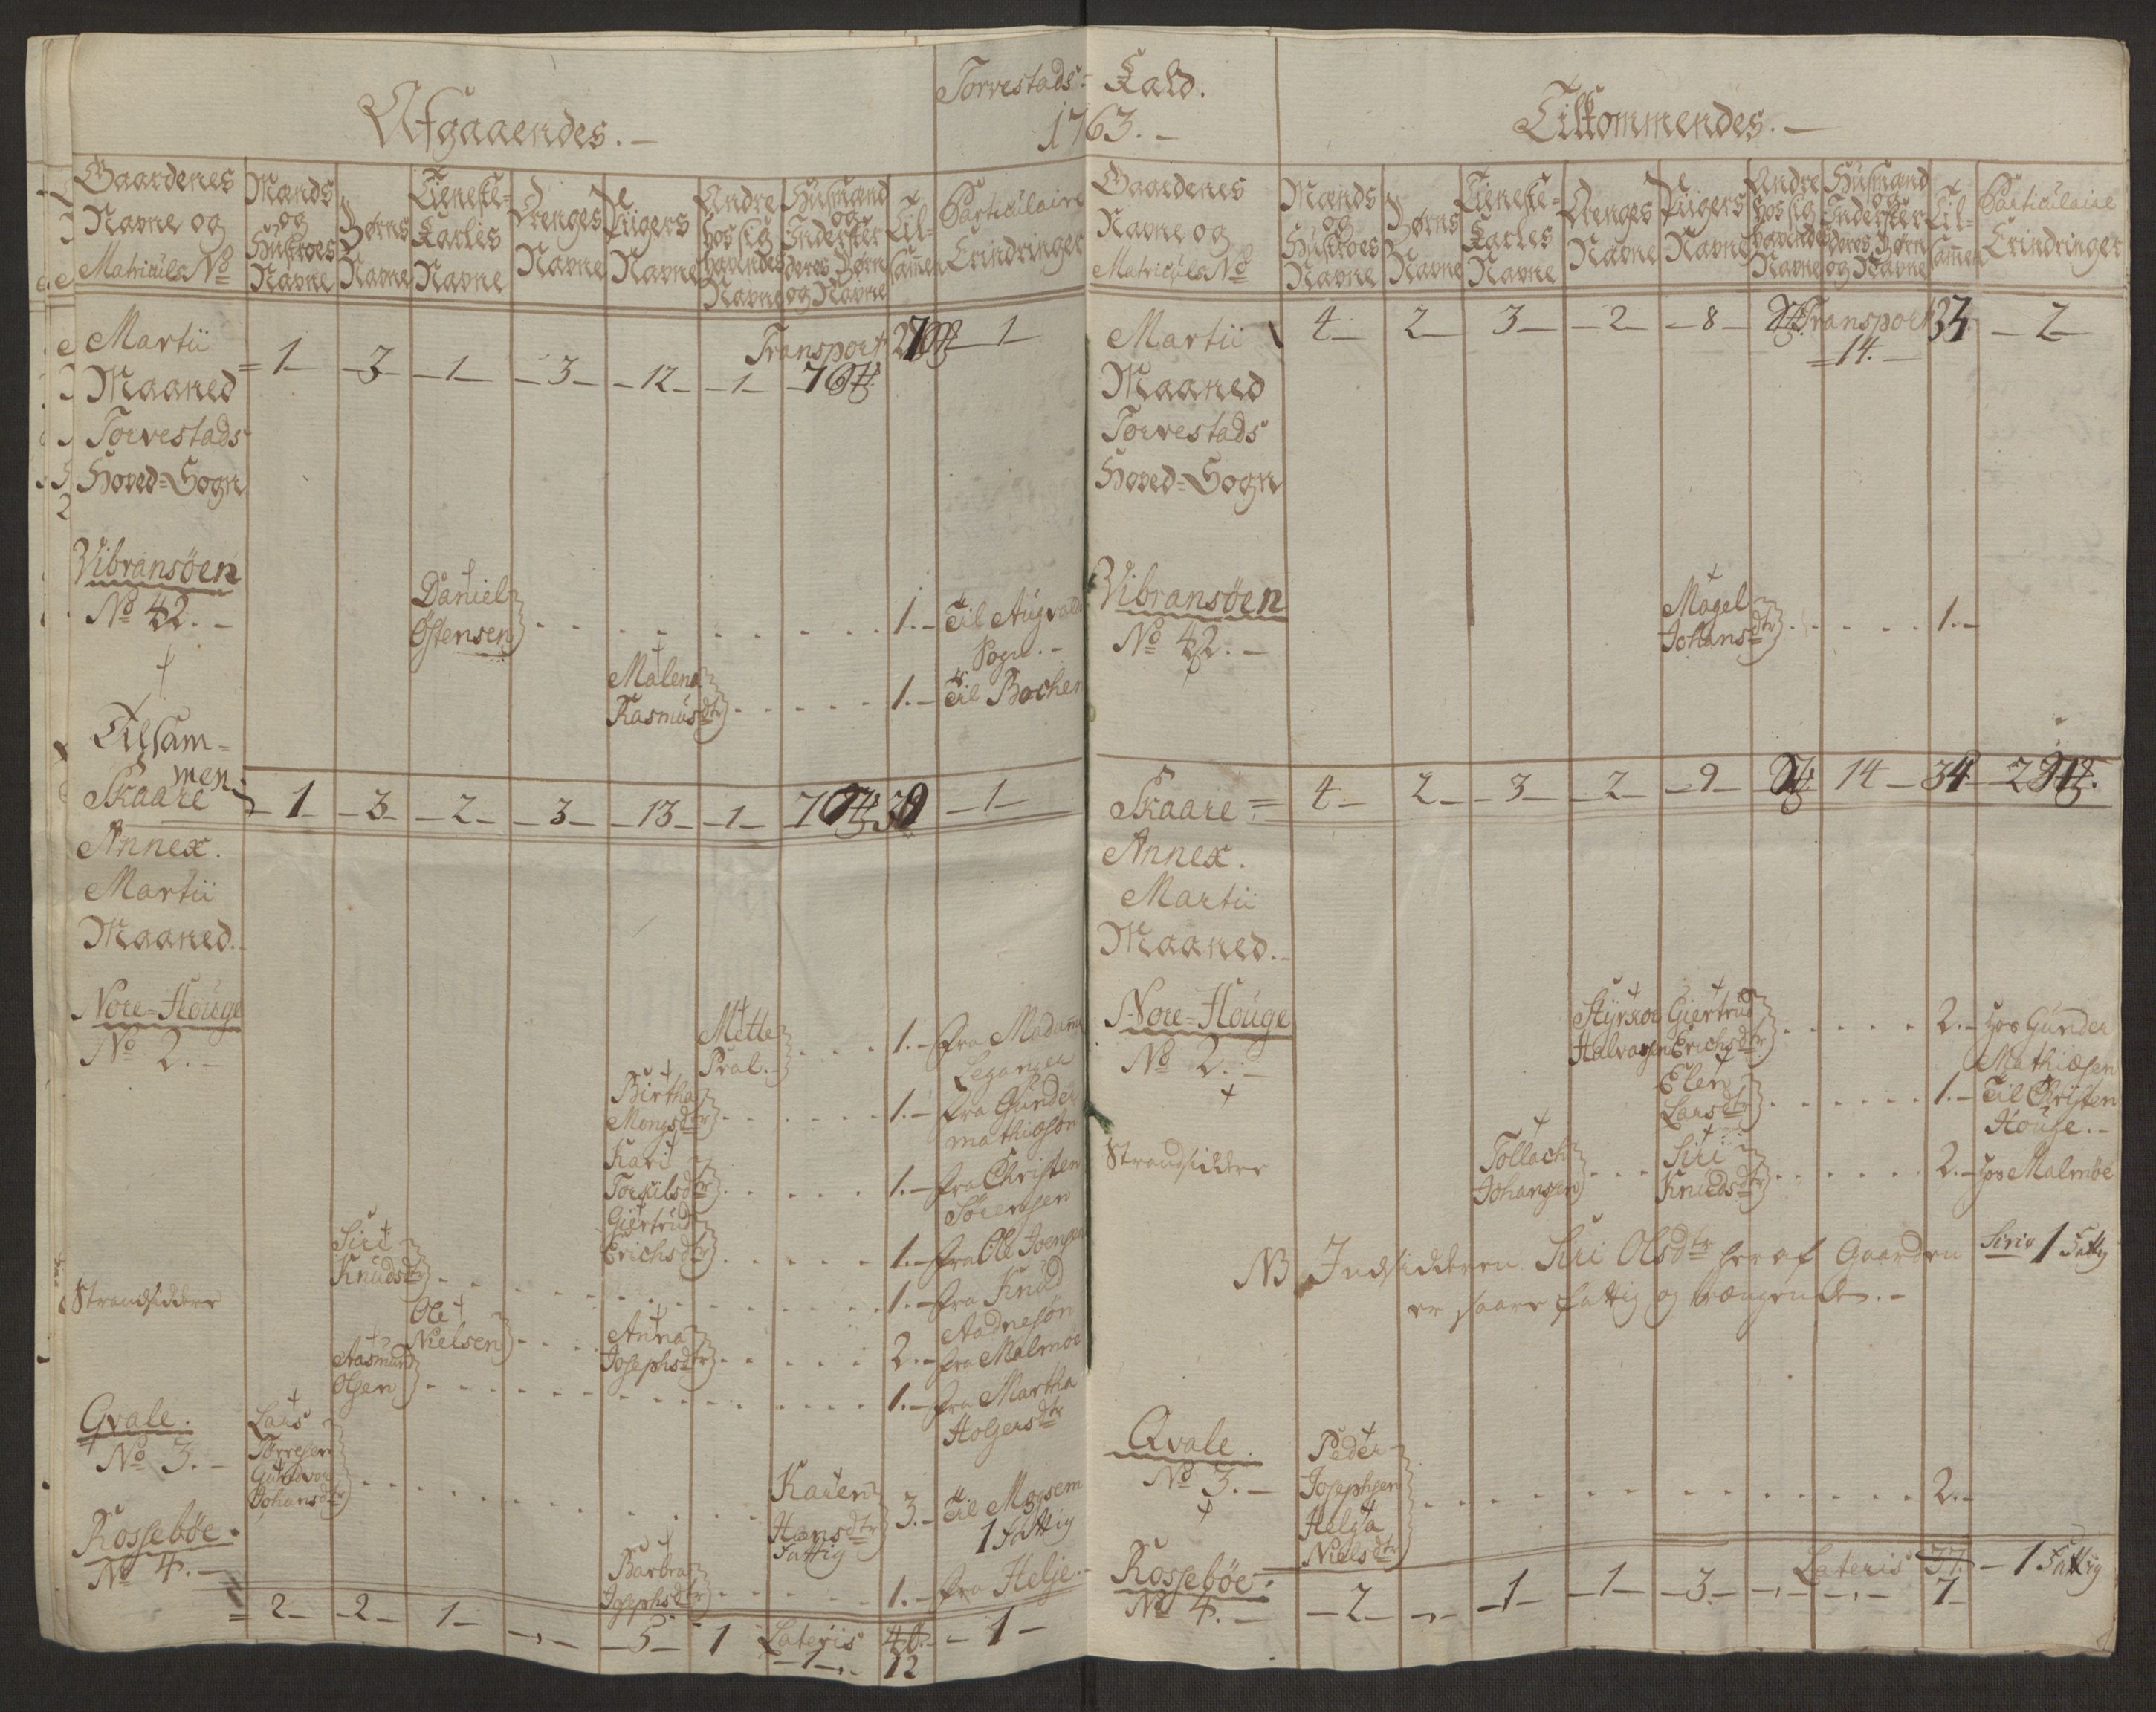 Torvestads- Kald.
1763.-
Afgaaendes.-
Gaardenes Navne og Matriculs No
Mænds og Hustroes Navne
Børns Navne
Tieneste-Karles Navne
Drenges Navne
Piigers Navne
Andre hos sig havendes Navne
Husmænd og Inderster deres Børn og Navne
Til-sammen
Particulaire Erindringer
Martii
Maaned
Torvestads
Hoved-Sogn
Transport
=1- -3- -1- -3- -12- -1- -7 27 -1-
Vibransøen
No 42.-
Daniel
Østensen 1.- Til Augvalds
Sogn.-
Malena
Rasmusdtr 1.- Til Bochen
Tilsam-
men
-1- -3- -2- -3- -13- -1- 7 -1-
Skaare
Annex.
Martii
Maaned.-
Nore-Houge
No 2.-
Mette
Pral. 1.- fra Madame
Leganger
Birtha
Mongsdtr 1.- fra Gunder
Mathiæsøn
Kari
Torkilsdtr 1.- fra Christen
Sørensen
Giertrud
Erichsdtr 1.- fra Ole Joensen
Siri
Knudsdtr 1.- fra Knud
Aadnesøn
Strandsiddere
Ole
Nielsen
Anna
Josephsdtr 2.- fra Malmøe
Aasmund
Olsen 1.- fra Martha
Holgersdtr
Qvale.
No 3.-
Lars
Torresen
Gundvor
Johansdtr
Karen
Hansdtr
Fattig 3.- Til Mogsem
1 Fattig
Rossebøe.
No 4.-
Barbra
Josephsdtr 1.- fra Helje.
=2- -2- 1- -,- -5- 1 Lateris 40. -1-
-1-,- 12
Tilkommendes.-
Gaardenes Navne og Matriculs No
Mænds og Hustroes Navne
Børns Navne
Tieneste-Karles Navne
Drenges Navne
Piigers Navne
Andre hos sig havende Navne
Husmænd og Inderster deres Børn og Navne
Til-sammen
Particulaire Erindringer
Martii
Maaned
Torvestads
Hoved-Sogn
4- 2- 3- -2- -8- Transport 34. -2-
=14.-
Vibransøen
No 42.-
Magel
Johansdtr 1.-
4- 2- -3- -2- -9- 14- 34 -2
Skaare =
Annex.
Martii
Maaned.-
Nore-Houge
No 2.-
Styrkor
Halvorsen
Giertrud
Erichsdtr 2.- hos Gunder
Mathiæsen
Elen
Larsdtr 1.- Til Christen
Houge.-
Strandsiddere
Tollach
Johansen
Siri
Knudsdtr 2.- hos Malmøe
NB Indsidderen Siri Olsdtr her af Gaarden
er saare fattig og trængende.-
Siri 1 Fattig
Qvale.
No 3.-
Peder
Josephsen
Helga
Nielsdtr 2.-
Rossebøe.
No 4.-
-2- -,- -1- -1- -3- -,- Lateris 37. -1 Fattig
-,- 7